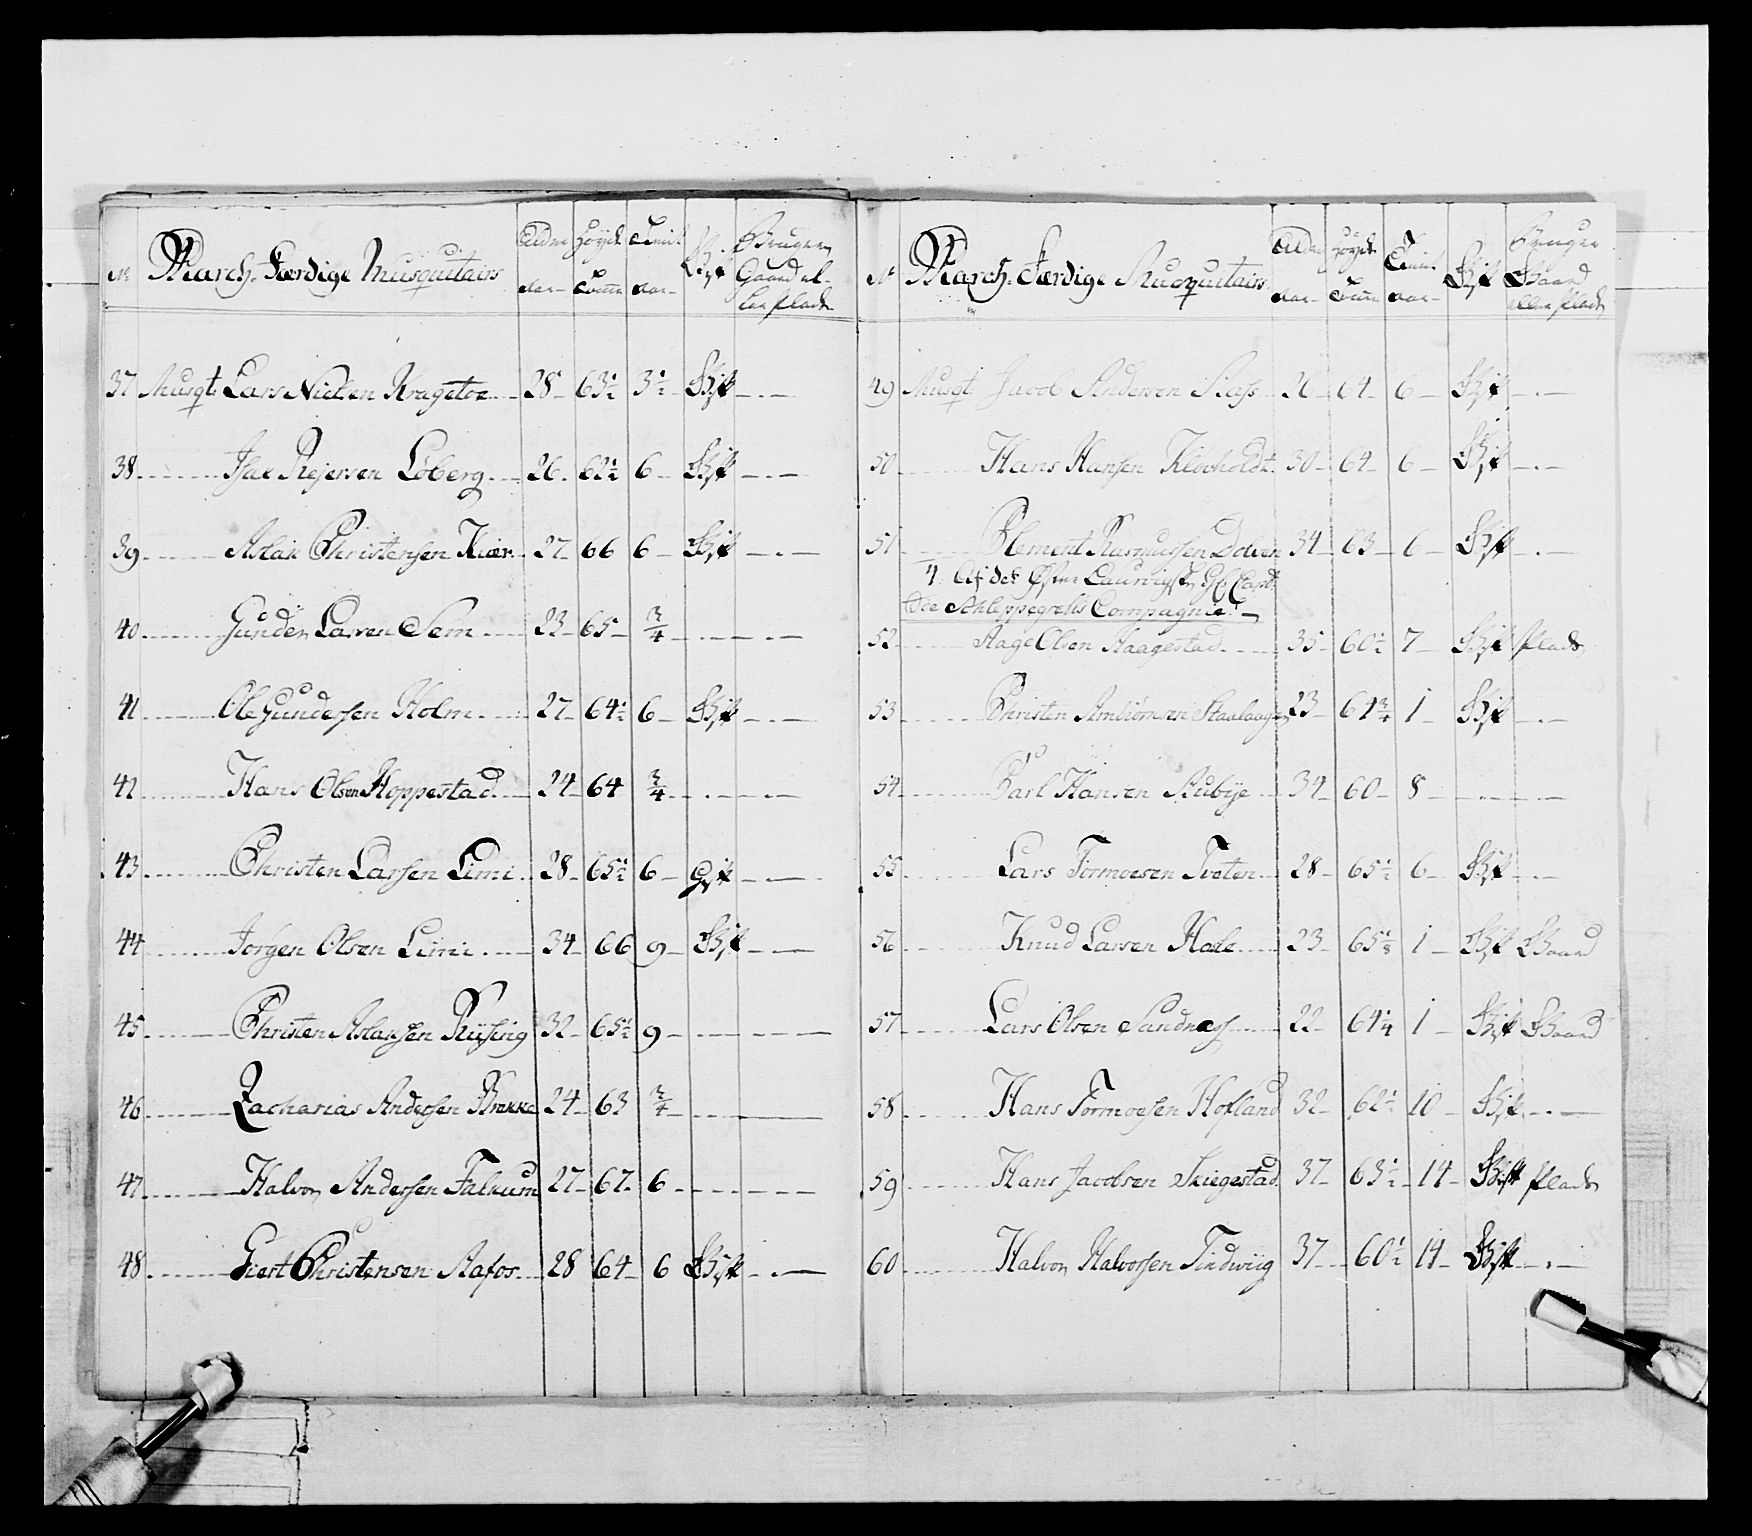 No March. Færdige Musquitairs Alder aar Høyde Tom̄e Tient aar Gift Bruger Gaard el- ler plads
37 Musqt Lars Nielsen Kragetoe 28 63½ 3½ Gift
38 Isac Rejersen Löberg 26 62½ 6 Gift
39 Aslak Christensen Kiær 27 66 6 Gift
40 Gunder Larsen Sem 23 65 ¾
41 Ole Gundersen Holm 27 64½ 6 Gift
42 Hans Olsen Hoppestad 24 64 ¾
43 Christen Larsen Limi 28 65½ 6 Gift
44 Jörgen Olsen Limi 34 66 9 Gift
45 Christen Aslaksen Rysing 32 65½ 9
46 Zacharias Andersen Brekke 24 63 ¾
47 Halvor Andersen Falkum 27 67 6
48 Giert Christensen Aafos 28 64 6 Gift
No March. Færdige Musquitairs Alder aar Høyde Tom̄e Tient aar Gift Bruger Gaard eller plads
49 Musqt Jacob Andersen 26 64 6 Gift
50 Hans Hansen Klovholdt 30 64 6 Gift
51 Clement Rasmussen Dolven 34 63 6 Gift
4. Af det Øster Laurvigske Comp. Capt.
de Schleppegrells Compagnie
52 Aage Olsen Haagestad 35 60½ 7 Gift plads
53 Christen Ambiörnsen 23 61¾ 1 Gift
54 Carl Hansen Aubye 34 60 8
55 Lars Tormoesen Tveten 28 65½ 6 Gift
56 Knud Larsen Hole 23 65½ 1 Gift Gaard
57 Lars Olsen Sandnæss 22 64¼ 1 Gift Gaard
58 Hans Tormoesen Hofland 32 62½ 10 Gift
59 Hans Jacobsen Skiegestad 37 63½ 14 Gift plads
60 Halvor Halvorsen Tindwiig 37 60½ 14 Gift